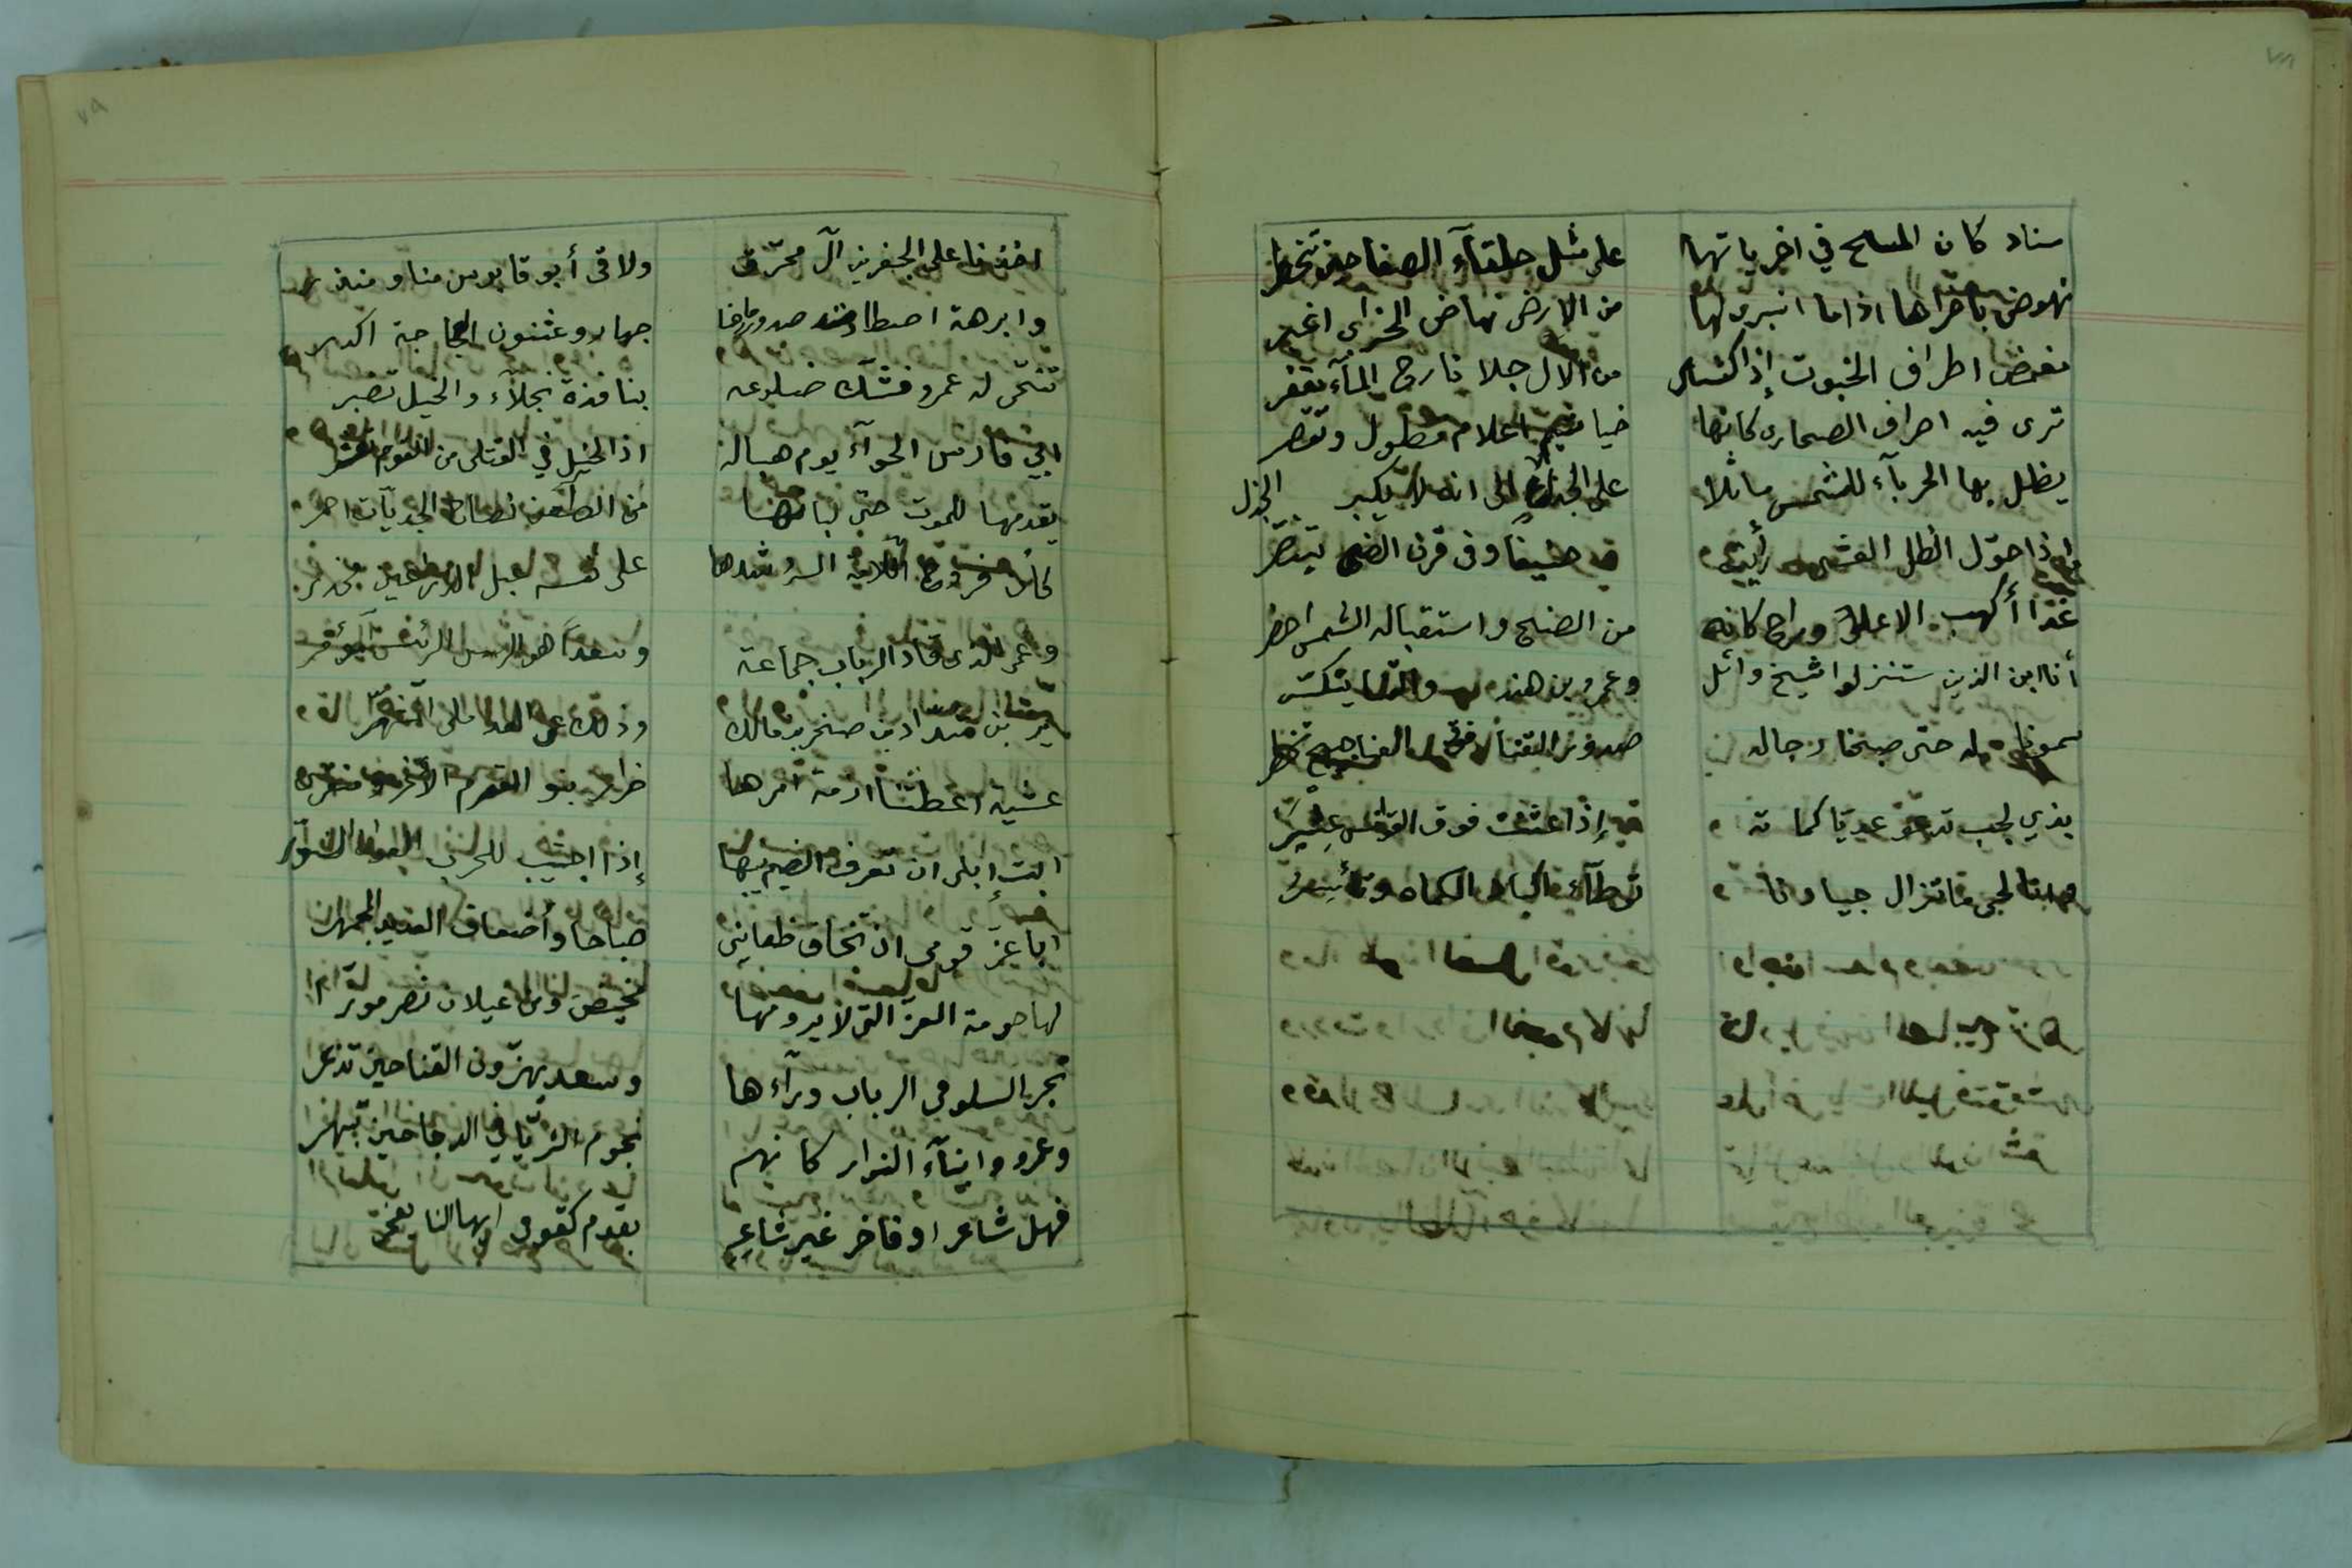 ٧٨
سناد كان المسح في اخرياتها على مثل خلقآء الصفا حين تخطر
نهوض باخراها اذا ما انبرى لها من الارض نهاض الحزابى اغبر
مغمض اطراف الخبوت إذا اكتسى من الال جلا نازح المآء مقفر
ترى فيه اطراف الصحارى كانها خياشيم اعلام تطول وتقصر
يظل بها الحربآء للشمس ماثلا على الجذل الا انه لا يكبر الجذل
اذا حوّل الظل العشى رأيته حنيفاً وفى قرن الضحى يتنصّر
غدا أكهب الاعلى وراح كانه من الضح واستقباله الشمس اخضر
أنا ابن الذين استنزلوا شيخ وائل وعمرو بن هند والقنا يتكسّر
سمونا له حتى صبحنا رجاله صدور القنا فوق العناجيج تخطر
بذي لجب تدعو عديّا كماته إذا عثنت فوق القوانس عِثيَرُ
وانا لحى ما تزال جيادنا توطّأ اكباد الكماة وتأسِرُ
٧٩
اخذنا على الجفرين آل محرّق ولاقى أبو قابوس منا ومنذر
وابرهة اصطادت صدور رماحنا جهارا وعثنون العجاجة اكدر
تنحّى له عمرو فشك ضلوعه بنافذة نجلآء والخيل تضبر
ابي فارس الحوآء يوم هبالة اذا الخيل في القتلى من القوم تعثر
يقدمها للموت حتى لبانها من الطعن نضاح الجديّات احمر
كان فروج اللامة السرد شدها على نفسه عبل الذراعين مخدر
وعمى الذى قاد الرباب جماعة وسعداً هو الرئيس الرئيس المؤمّر
يزيد بن شداد بن صخر بن مالك وذلك عمى العدملى المشهّر
عشية اعطتنا ازمة امرها ضرار بنو القرم الاغر ومنقر
ابت إبلى ان تعرف الضيم نيبها إذا اجتيب للحرب العوان السنوّر
ابا عز قومى ان تخاف ظعاينى صباحا وأضعاف العديد المجمهر
لها حومة العز التى لا يرومها مخيض ومن عيلان نصر موزّر
تجر السلوقى الرباب ورآءها وسعد يهزّون القنا حين تذعر
وعمرو وابنآء النوار كانهم نجوم الثريّا في الدجا حين تبهر
فهل شاعر او فاخر غير شاعر بقوم كقومى ايها الناس يفخر